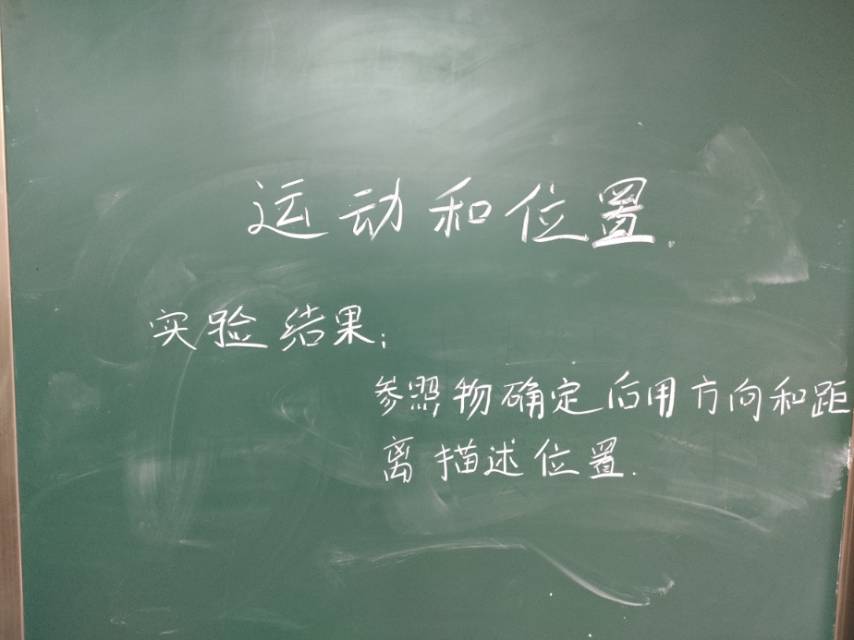 运动和位置.
实验结果;
参照物确定后用方向和距
离描述位置.